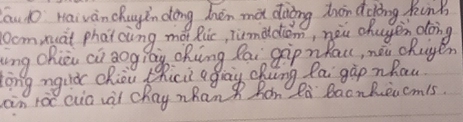 Câu 10: Hai vân chuyển dông trên một đường tròn đường kính
10cm, xuất phát cùng một lúc, từ một điểm, nếu chuyển đông
ung chiều cứ 20g iây chúng lại gặp nhau, nếu chuyển
tộng ngược chiều thì cứ 4 giây chúng lại gặp nhau.
vận tốc của vật chạy nhanh hơn là bao nhiêu cm/s.